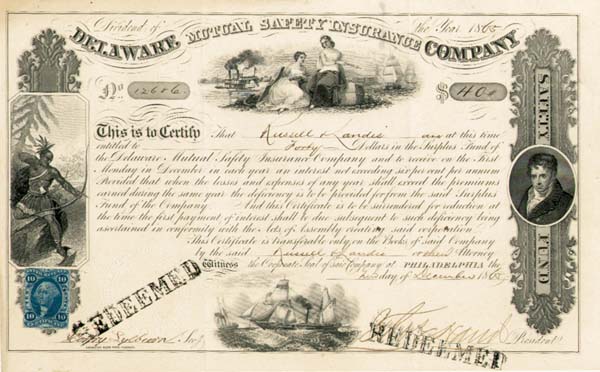 Dividend of The Year 1865
DELAWARE MUTUAL SAFETY INSURANCE COMPANY
No 12686 $ 40
SAFETY FUND
This is to Certify That Russell & Landis are at this time
entitled to Forty Dollars in the Surplus Fund of
the Delaware Mutual Safety Insurance Company and to receive on the First
Monday in December in each year an interest not exceeding six per cent per annum
Provided that when the losses and expenses of any year shall exceed the premiums
earned during the same year the deficiency is to be provided for from the said Surplus
Fund of the Company And this Certificate is to be surrendered for reduction at
the time the first payment of interest shall be due subsequent to such deficiency being
ascertained in conformity with the Acts of Assembly creating said corporation
This Certificate is transferable only on the Books of said Company
by the said Russell & Landis or their Attorney
Witness the Corporate Seal of said Company at PHILADELPHIA the
day of December 1865
10 10
10 10
REDEEMED
REDEEMED
Secy
President